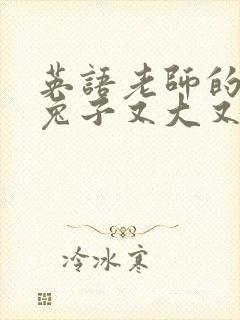 英語老師的
兔子又大又
冷冰寒